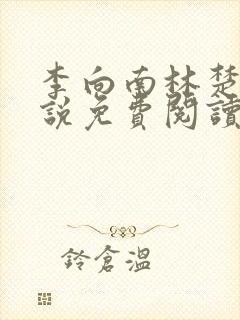 李向南林楚
說免費閱讀
鈴倉溫